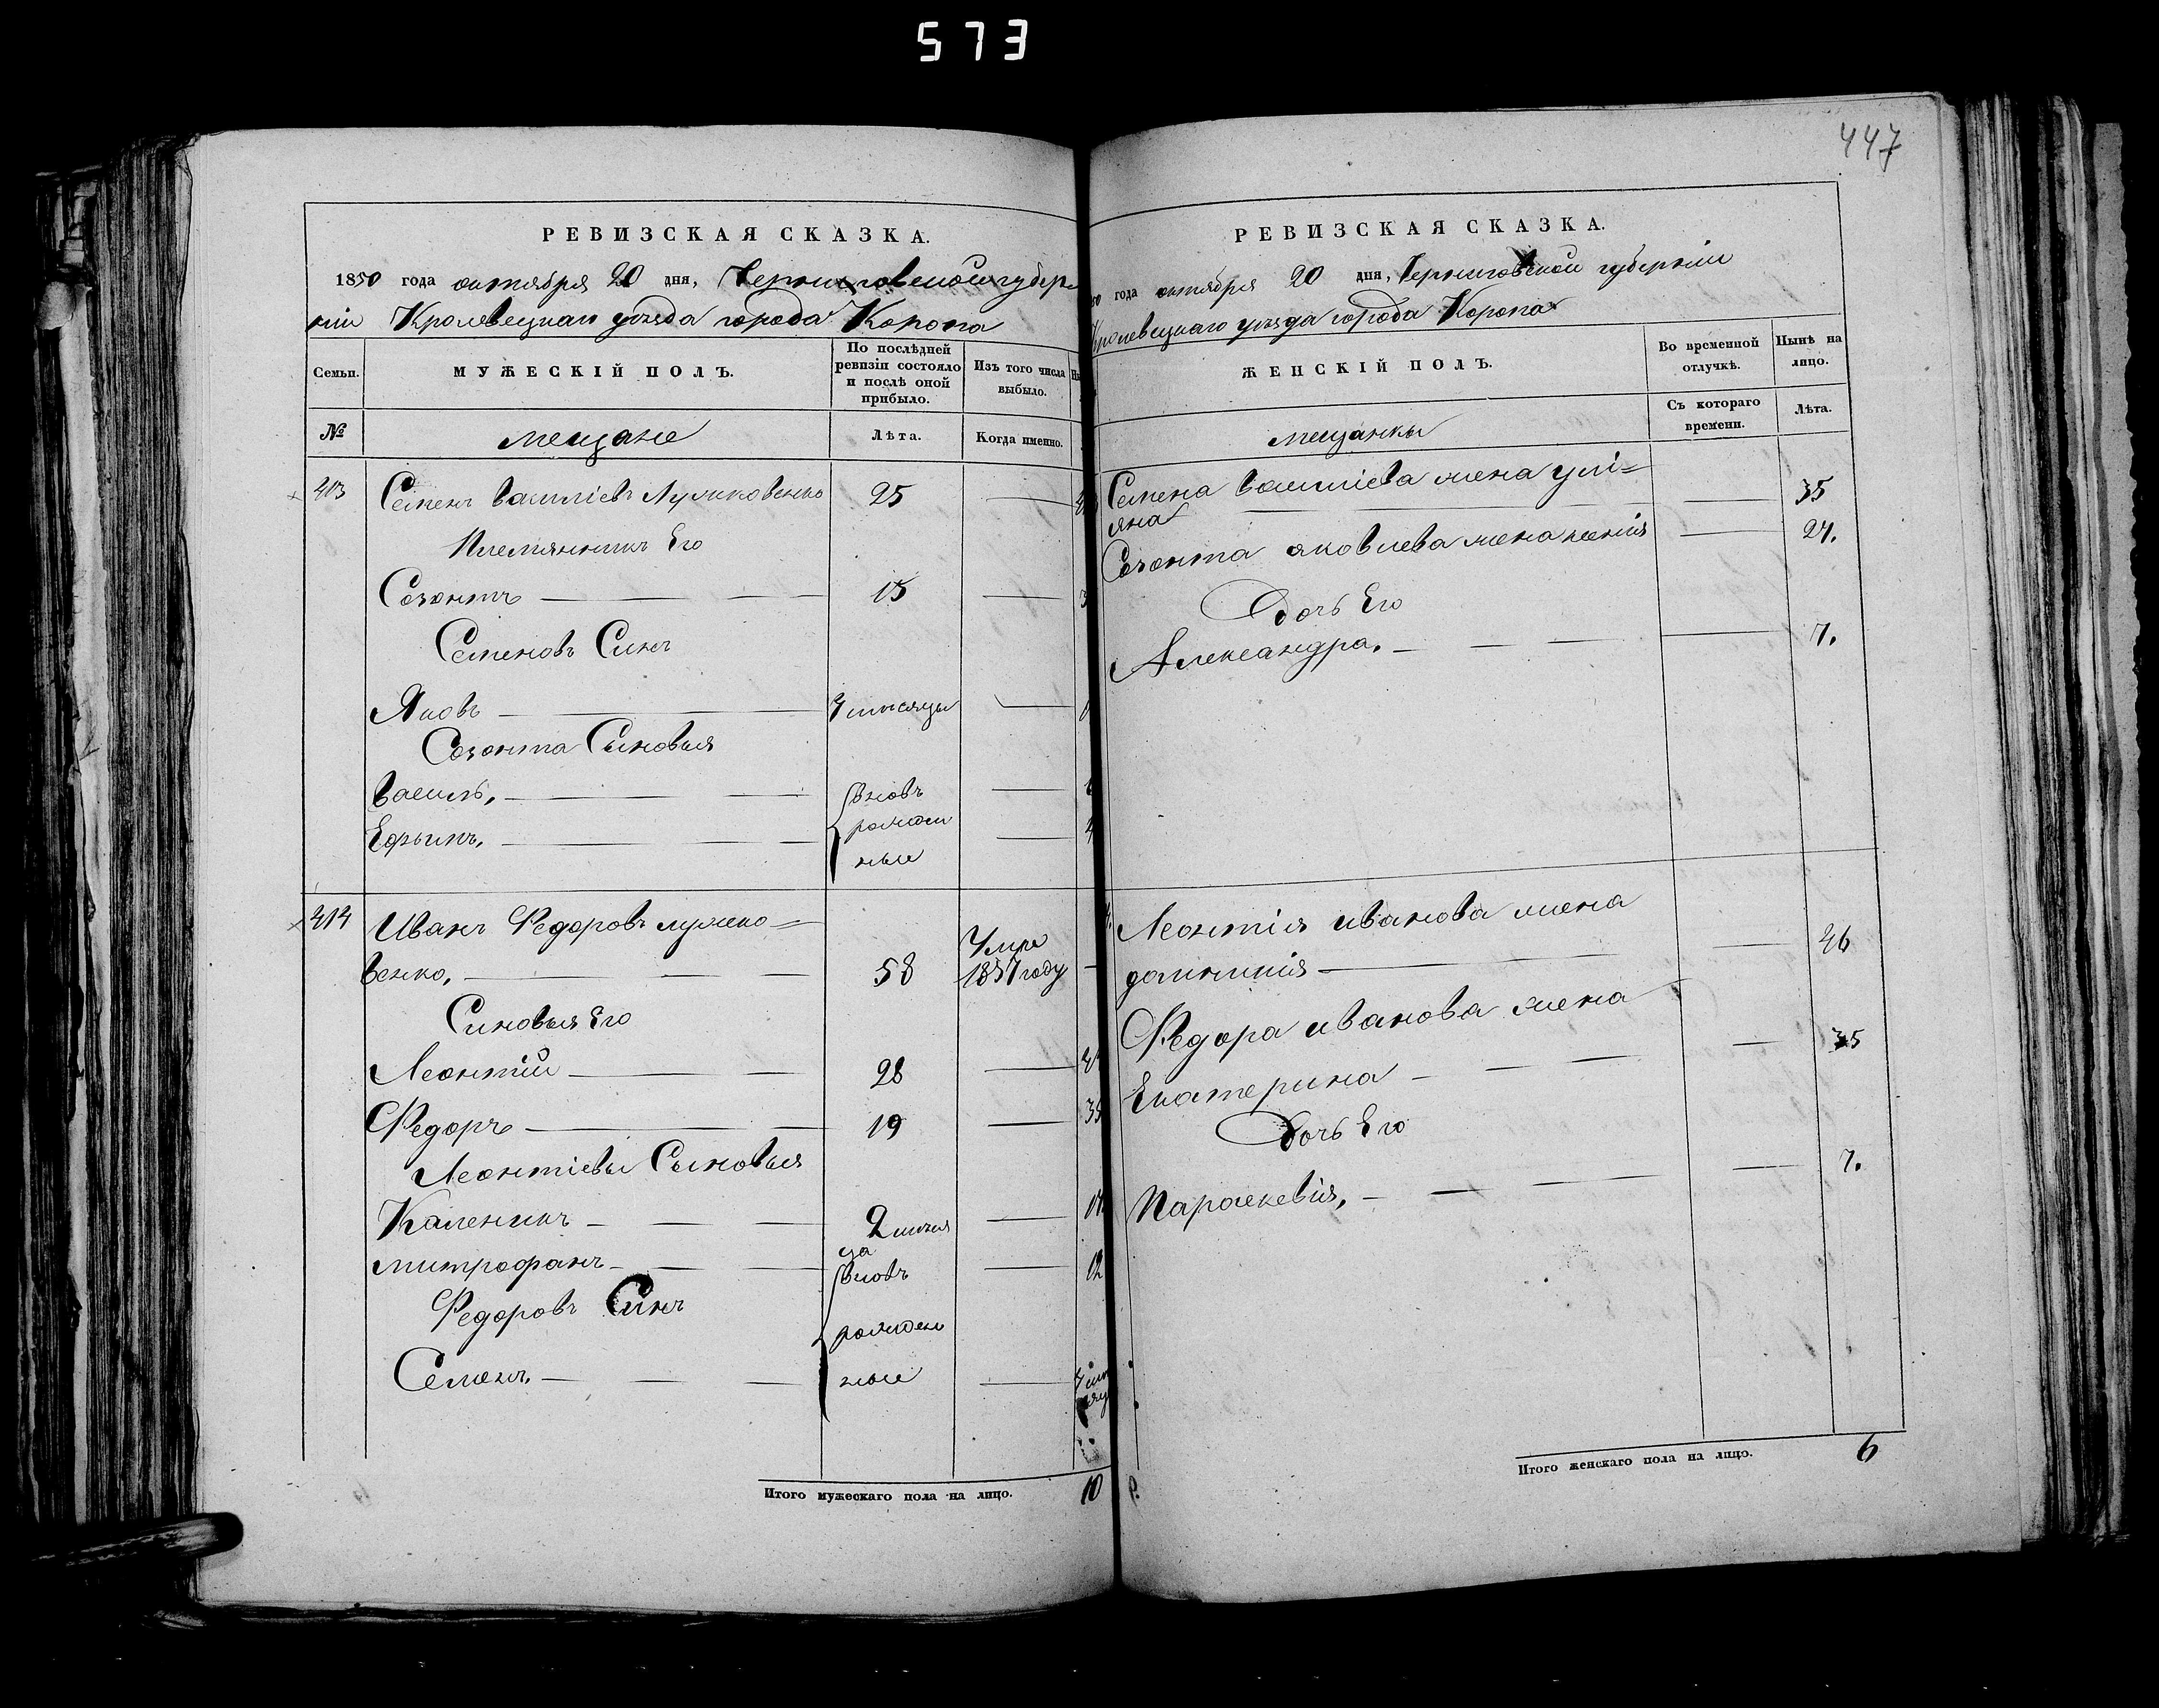 573
447
РЕВИЗСКАЯ СКАЗКА.
1850 года октября 20 дня, Черниговской губер
ніи Кролевецкаго уѣзда города Коропа
Семьи.
МУЖЕСКІЙ ПОЛЪ.
По послѣдней
ревизіи состояло
и послѣ оной
прибыло.
Изъ того числа
выбыло.
№
мещане
Лѣта.
Когда именно.
Семенъ Василіевъ 25
Племянникъ Его
Созонтъ 15
Семеновъ Синъ
Яковъ 4 месяцы
Созонта Сыновья
Василь, вновь
Ефимъ, рожден
ные
414 Иванъ Федоровъ
венко, 58 Умре 1837 году
Синовья Его
Леонтій 28
Федоръ 19 35
Леонтіевы Сыновья
Каленикъ 2 меся
ца
Митрофанъ вновь 12
Федоровъ Синъ
рожден
Семенъ. ные
Итого мужескаго пола на лицо. 10
РЕВИЗСКАЯ СКАЗКА.
50 года октября 20 дня, Черниговской губерніи
Кролевецкаго уѣзда города Коропа
ЖЕНСКІЙ ПОЛЪ.
Во временной
отлучкѣ.
Нынѣ на
лицо.
мещанки
Съ котораго
времени.
Лѣта.
Семена Василіева жена улі=
яна 35
Созонта яковлева жена ксенія 27.
Дочь Его
Александра. 7.
Леонтія иванова жена
домникія 46
Федора иванова жена
Екатерина 35
Дочь Его
Параскевія, 7.
Итого женскаго пола на лицо. 6